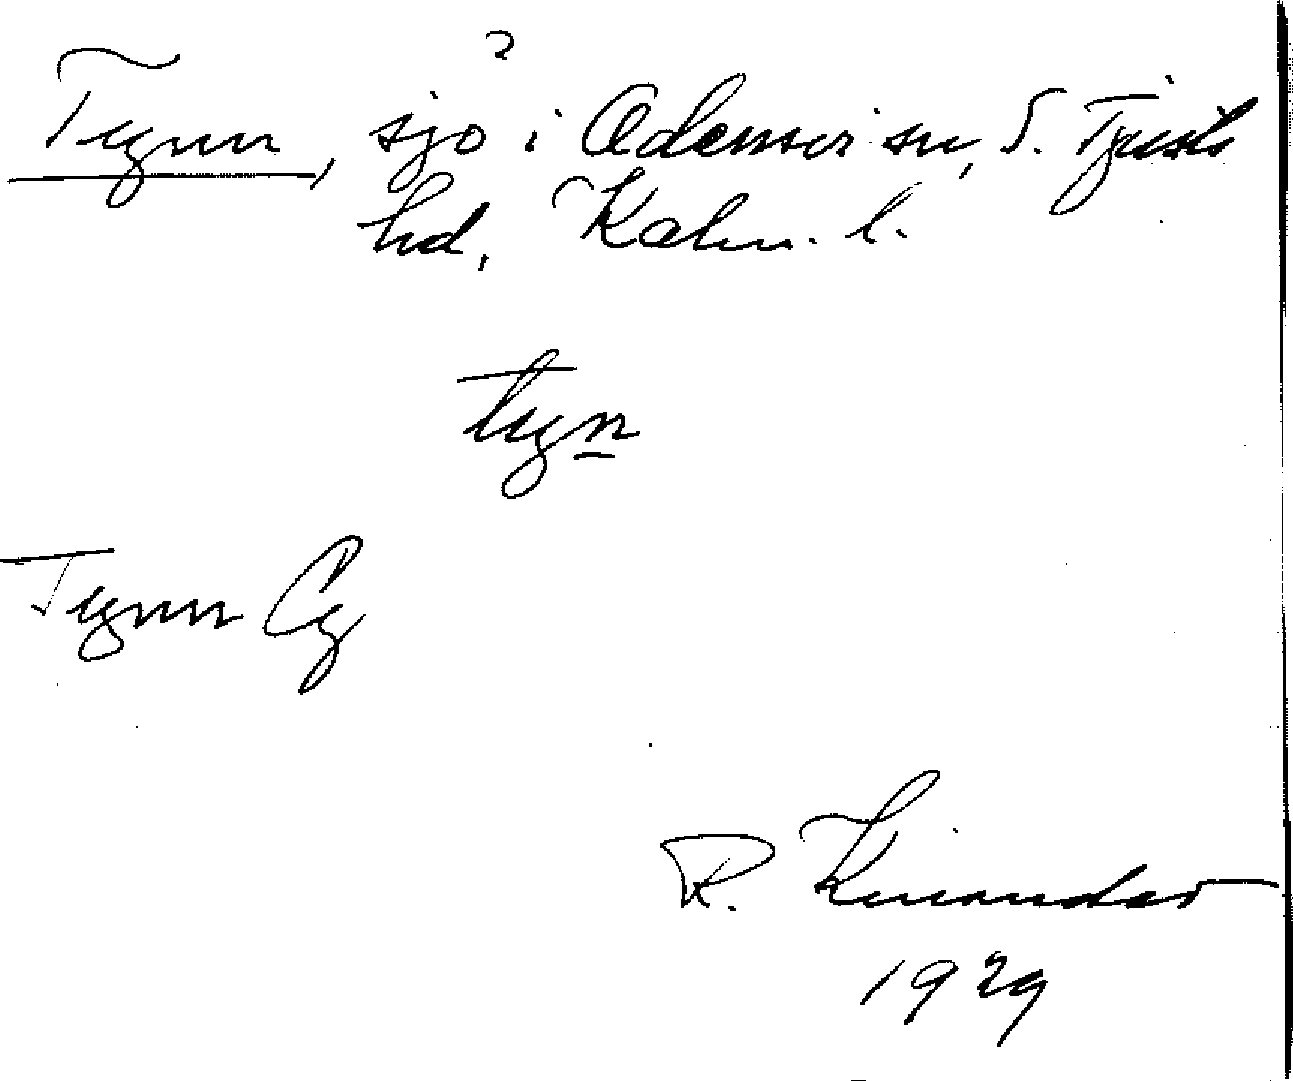 ?
Tynn, sjö i Odensvi sn, S. Tjusts
hd, Kalm. l.
tyn
Tynn Cg
R. Kinander
1929